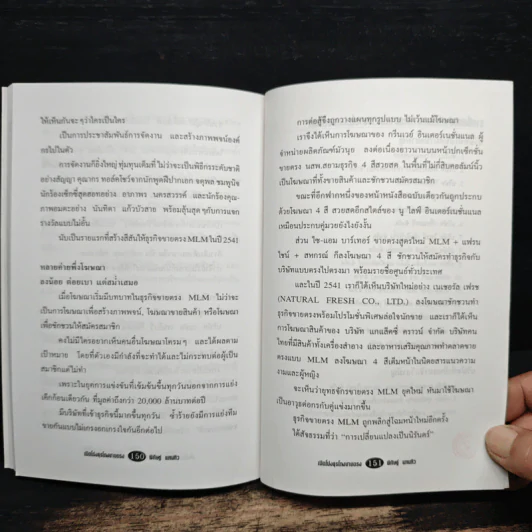 ให้เห็นกันจะ ๆ ว่าใครเป็นใคร
เป็นการประชาสัมพันธ์การจัดงาน และสร้างภาพพจน์องค์
กรไปในตัว
การจัดงานก็ยิ่งใหญ่ ทุ่มทุนเต็มที่ ไม่ว่าจะเป็นพิธีกรระดับชาติ
อย่างสัญญา คุณากร ทอล์คโชว์จากนักพูดฝีปากเอก จตุพล ชมพูนิช
นักร้องเซ็กซี่สุดสอยอย่าง อาภาพร นครสวรรค์ และนักร้องคุณ-
ภาพอมตะอย่าง นันทิดา แก้วบัวสาย พร้อมลุ้นสุดๆกับการแจก
รางวัลแบบไม่อั้น
นับเป็นรายแรกที่สร้างสีสันให้ธุรกิจขายตรง MLM ในปี 2541
หลายค่ายพึ่งโฆษณา
ลงน้อย ต่อยเบา แต่สม่ำเสมอ
เมื่อโฆษณาเริ่มมีบทบาทในธุรกิจขายตรง MLM ไม่ว่าจะ
เป็นการโฆษณาเพื่อสร้างภาพพจน์, โฆษณาขายสินค้า หรือโฆษณา
เพื่อชักชวนให้สมัครสมาชิก
คงไม่มีใครอยากเห็นคนอื่นโฆษณาโครมๆ และได้ผลตาม
เป้าหมาย โดยที่ตัวเองมีกำลังที่จะทำได้และไม่กระทบต่อผู้เป็น
สมาชิกแต่ไม่ทำ
เพราะในยุคการแข่งขันที่เข้มข้นขึ้นทุกวันนอกจากการแย่ง
เค้กก้อนเดียวกัน ที่มูลค่าถึงกว่า 20,000 ล้านบาทต่อปี
มีบริษัทที่เข้าธุรกิจนี้มากขึ้นทุกวัน ซ้ำร้ายยังมีการแย่งทีม
ขายกันแบบไม่เกรงอกเกรงใจกันอีกต่อไป
150
การต่อสู้จึงถูกวางแผนทุกรูปแบบ ไม่เว้นแม้โฆษณา
เราจึงได้เห็นการโฆษณาของ กรีนเวย์ อินเตอร์เนชั่นแนล ผู้
จำหน่ายผลิตภัณฑ์มัวนุย ลงต่อเนื่องยาวนานบนหน้าปกเซ็กชั่น
ขายตรง นสพ.สยามธุรกิจ 4 สีสวยสด ในพื้นที่ไม่กี่สิบคอลัมน์นิ้ว
เป็นโฆษณาที่ทั้งขายสินค้าและชักชวนสมัครสมาชิก
ขณะที่อีกฟากหนึ่งของหน้าหนังสือฉบับเดียวกันถูกประกบ
ด้วยโฆษณา 4 สี สวยสดอีกสไตล์ของ นู ไลฟ์ อินเตอร์เนชั่นแนล
เหมือนประกบคู่มวยยังไงยังงั้น
ส่วน ไซ-แอม บาร์เทอร์ ขายตรงสูตรใหม่ MLM + แฟรน
ไชน์ + สหกรณ์ ก็ลงโฆษณา 4 สี ชักชวนให้สมัครทำธุรกิจกับ
บริษัทแบบตรงไปตรงมา พร้อมรายชื่อศูนย์ทั่วประเทศ
และในปี 2541 เราก็ได้เห็นบริษัทใหม่อย่าง เนเชอรัล เฟรช
(NATURAL FRESH CO., LTD.) ลงโฆษณาชักชวนทำ
ธุรกิจขายตรงพร้อมโปรโมชั่นพิเศษล่อใจนักขาย และเราก็ได้เห็น
การโฆษณาสินค้าของ บริษัท แกแล็คซี่ คราวน์ จำกัด บริษัทคน
ไทยที่มีสินค้าทั้งเครื่องสำอาง และอาหารเสริมคุณภาพทำตลาดขาย
ตรงแบบ MLM ลงโฆษณา 4 สีเต็มหน้าในนิตยสารแนวความ
งามและผู้หญิง
จะเห็นว่ายุทธจักรขายตรง MLM ยุคใหม่ หันมาใช้โฆษณา
เป็นอาวุธต่อกรกับคู่แข่งมากขึ้น
ธุรกิจขายตรง MLM ถูกพลิกสู่โฉมหน้าใหม่อีกครั้ง
ได้สัจธรรมที่ว่า “การเปลี่ยนแปลงเป็นนิรันดร์”
151